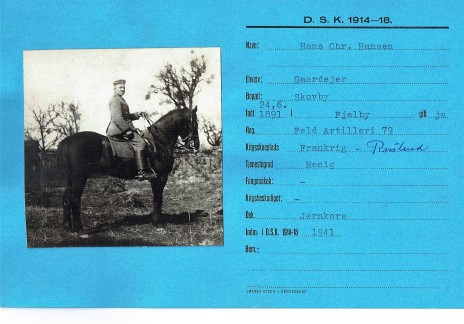 D. S. K. 1914—18.
Navn: Hans Chr. Hansen
Erhverv: Gaardejer
Bopæl: Skovby
Født 24.6. 1891 i Fjelby gift ja
Reg. Feld Artilleri 79
Krigsskueplads Frankrig - Rusland
Tjenestegrad Menig
Fangenskab: -
Krigsbeskadiget: -
Dek. Jernkors
Indm. i D.S.K. 1914-18 1941
Bem.: